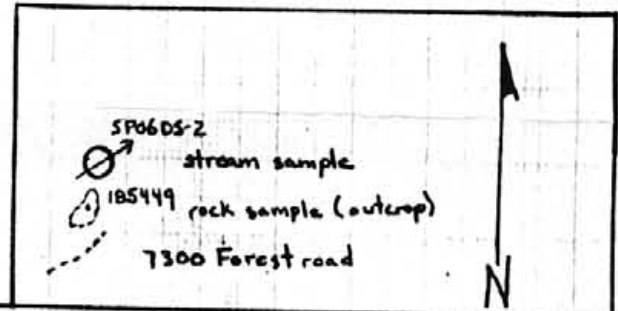 SP06DS-2
stream sample
185449 rock sample (outcrop)
7300 Forest road
N